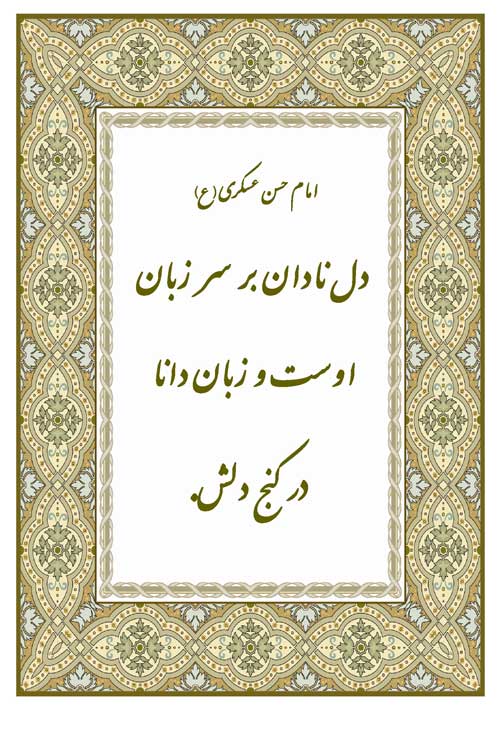 امام حسن عسکری (ع)
دل نادان بر سر زبان
اوست و زبان دانا
در کنج دلش.